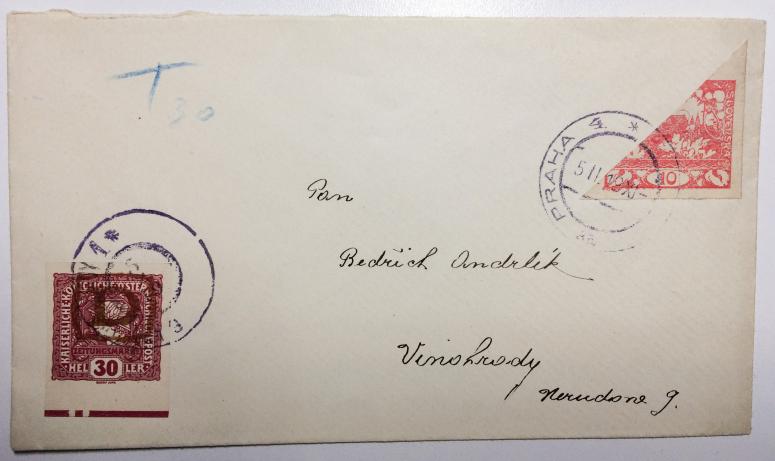 T
30
PRAHA 4 *
5.II.19.XI-
SLOVENSKÁ
10
Pan
Bedřich Andrlík
Vinohrady
Nerudova 9.
1*
KAISERLICHE-KÖNIGLICHE-ÖSTERREICHISCHE-POST
P
ZEITUNGSMARKE
HEL 30 LER